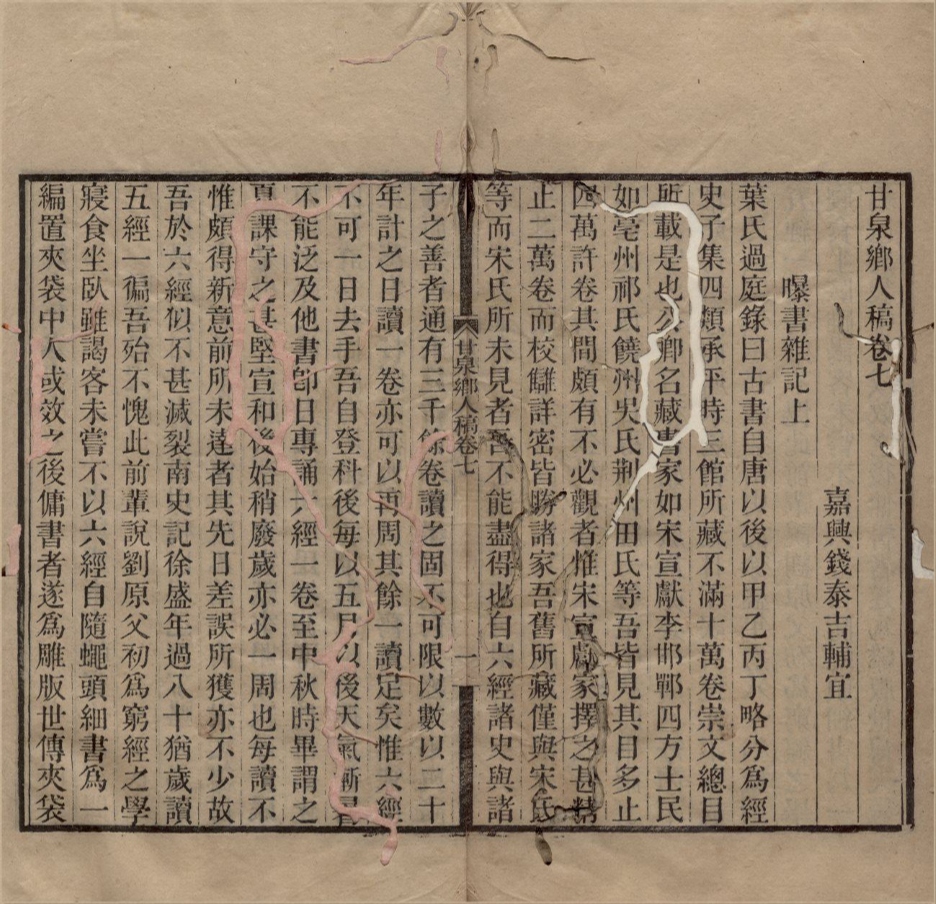 甘泉鄉人稿卷七
嘉興錢泰吉輔宜
曝書雜記上
葉氏過庭錄曰古書自唐以後以甲乙丙丁略分為經
史子集四類承平時三館所藏不滿十萬卷崇文總目
所載是也公卿名藏書家如宋宣獻李邯鄲四方士民
如亳州祁氏饒州吳氏荆州田氏等吾皆見其目多止
四萬許卷其間頗有不必觀者惟宋宣獻家擇之甚精
止二萬卷而校讎詳密皆勝諸家吾舊所藏僅與宋氏
等而宋氏所未見者吾不能盡得也自六經諸史與諸
甘泉鄉人稿卷七
一
子之善者通有三千餘卷讀之固不可限以數以二十
年計之日讀一卷亦可以再周其餘一讀足矣惟六經
不可一日去手吾自登科後每以五月以後天氣漸暑
不能泛及他書卽日專誦六經一卷至中秋時畢謂之
夏課守之甚堅宣和後始稍廢歲亦必一周也每讀不
惟頗得新意前所未達者其先日差誤所獲亦不少故
吾於六經似不甚滅裂南史記徐盛年過八十猶歲讀
五經一徧吾殆不愧此前輩說劉原父初為窮經之學
寢食坐臥雖謁客未嘗不以六經自隨蠅頭細書為一
編置夾袋中人或效之後傭書者遂為雕版世傳夾袋